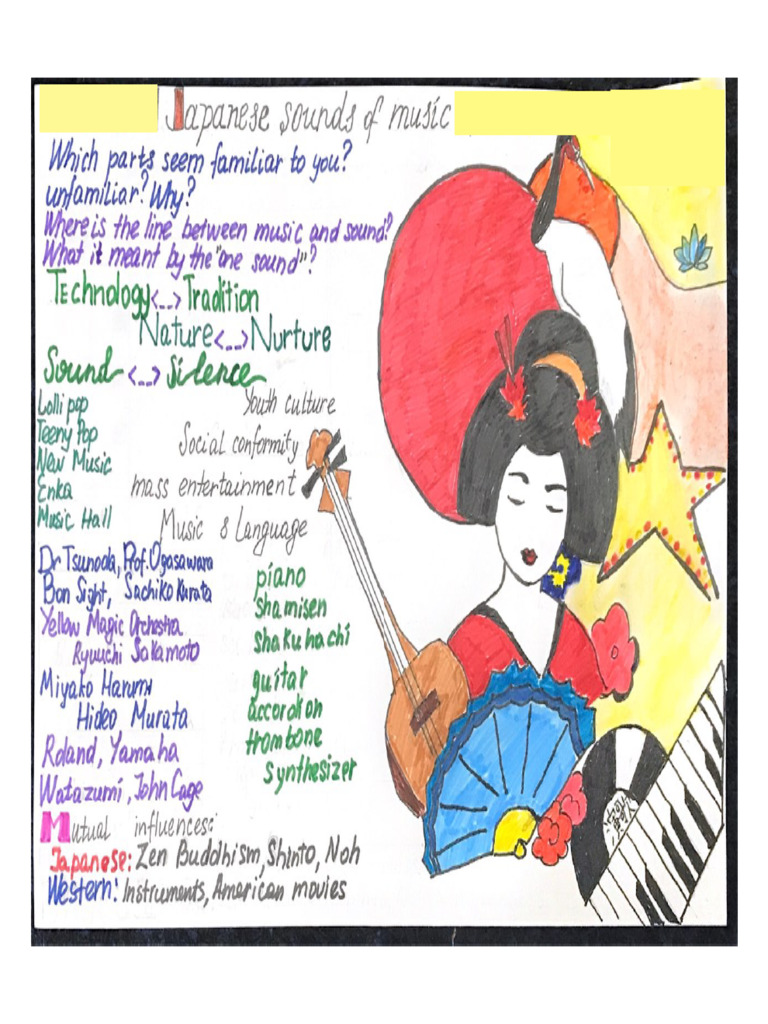 Japanese sounds of music
Which parts seem familiar to you?
unfamiliar? Why?
Where is the line between music and sound?
What it meant by the "one sound"?
Technology <--> Tradition
Nature <--> Nurture
Sound <--> Silence
Lolli pop
Teeny Pop
New Music
Enka
Music Hall
Youth culture
Social conformity
mass entertainment
Music & Language
Dr Tsunoda, Prof. Ogasawara
Bon Sight, Sachiko Kurata
Yellow Magic Orchestra
Ryuuchi Sakamoto
Miyako Harumi
Hideo Murata
Roland, Yamaha
Watazumi, John Cage
piano
shamisen
shakuhachi
guitar
accordion
trombone
synthesizer
Mutual influences:
Japanese: Zen Buddhism, Shinto, Noh
Western: Instruments, American movies